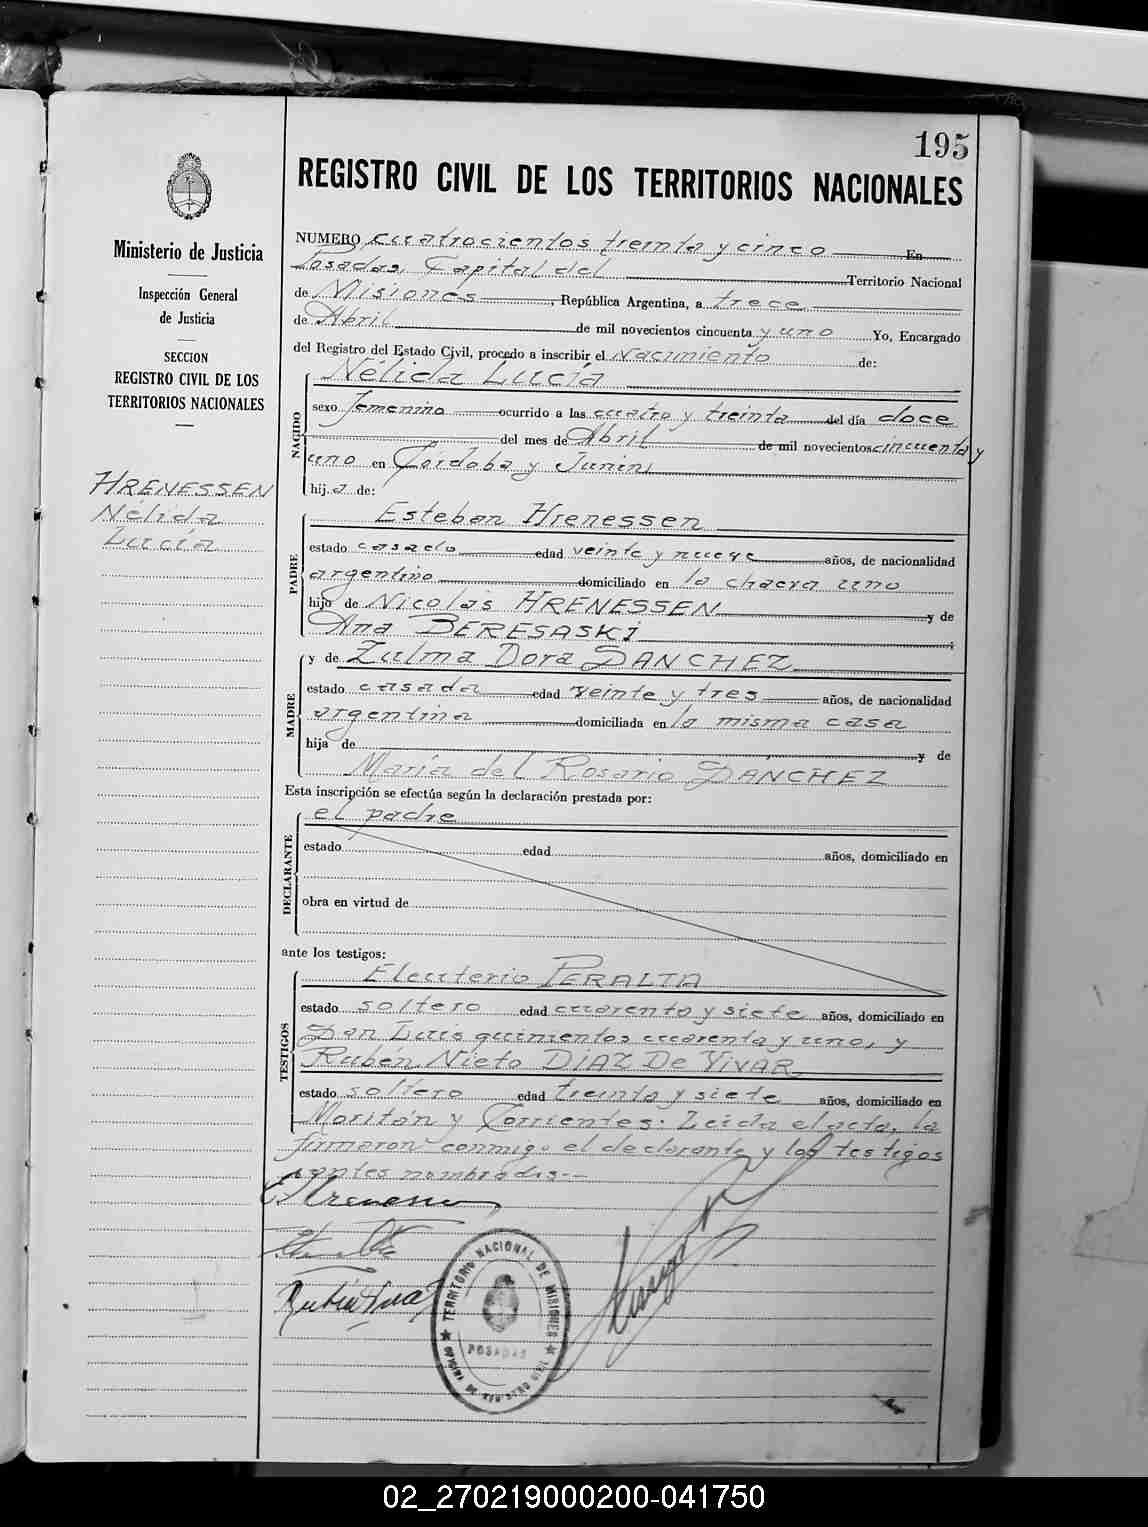 195
REGISTRO CIVIL DE LOS TERRITORIOS NACIONALES
Ministerio de Justicia
Inspección General
de Justicia
SECCION
REGISTRO CIVIL DE LOS
TERRITORIOS NACIONALES
HRENESSEN
Nélida
Lucía
NUMERO cuatrocientos treinta y cinco En
Posadas, Capital del Territorio Nacional
de Misiones, República Argentina, a trece
de Abril de mil novecientos cincuenta y uno Yo, Encargado
del Registro del Estado Civil, procedo a inscribir el Nacimiento de:
NACIDO
Nélida Lucía
sexo femenino ocurrido a las cuatro y treinta del día doce
del mes de Abril de mil novecientos cincuenta y
uno en Córdoba y Junín
hij a de:
PADRE
Esteban Hrenessen
estado casado edad veinte y nueve años, de nacionalidad
argentino domiciliado en la chacra uno
hijo de Nicolás HRENESSEN y de
Ana BERESASKI
MADRE
y de Zulma Dora SANCHEZ
estado casada edad veinte y tres años, de nacionalidad
argentina domiciliada en la misma casa
hija de y de
María del Rosario SANCHEZ
Esta inscripción se efectúa según la declaración prestada por:
DECLARANTE
el padre
estado edad años, domiciliado en
obra en virtud de
ante los testigos:
TESTIGOS
Eleuterio PERALTA
estado soltero edad cuarenta y siete años, domiciliado en
San Luis quinientos cuarenta y uno, y
Rubén Nieto DIAZ De VIVAR
estado soltero edad treinta y siete años, domiciliado en
Moritán y Corrientes. Leida el acta, la
firmaron conmigo el declarante y los testigos
antes nombrados--
TERRITORIO NACIONAL DE MISIONES
POSADAS
OFICINA DE REGISTRO CIVIL
02_270219000200-041750